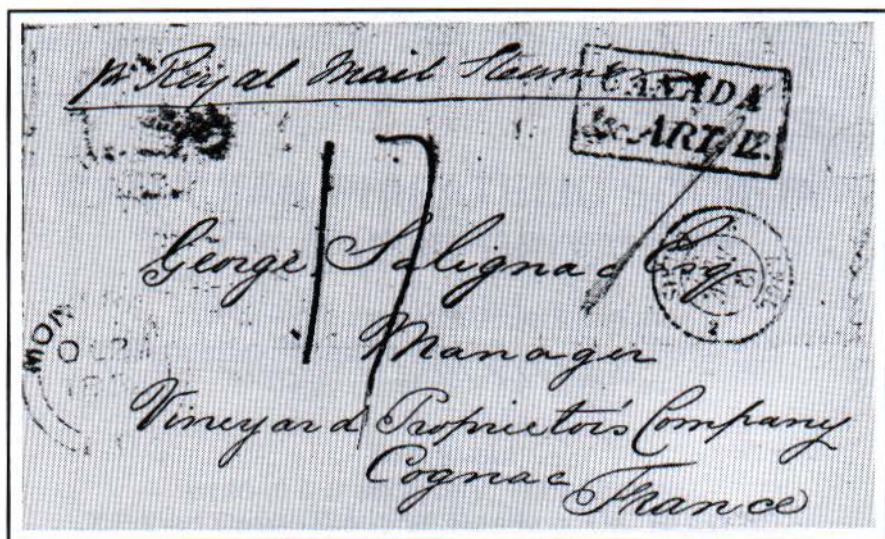 pr Royal Mail Steamer
CANADA
ART. 12.
17
George Salignac Esq
Manager
Vineyard Proprietors Company
Cognac
France
MON